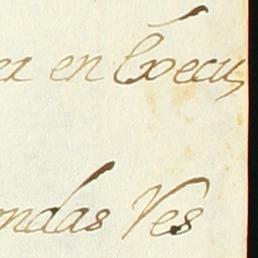 er en Execu,
ondas Ves